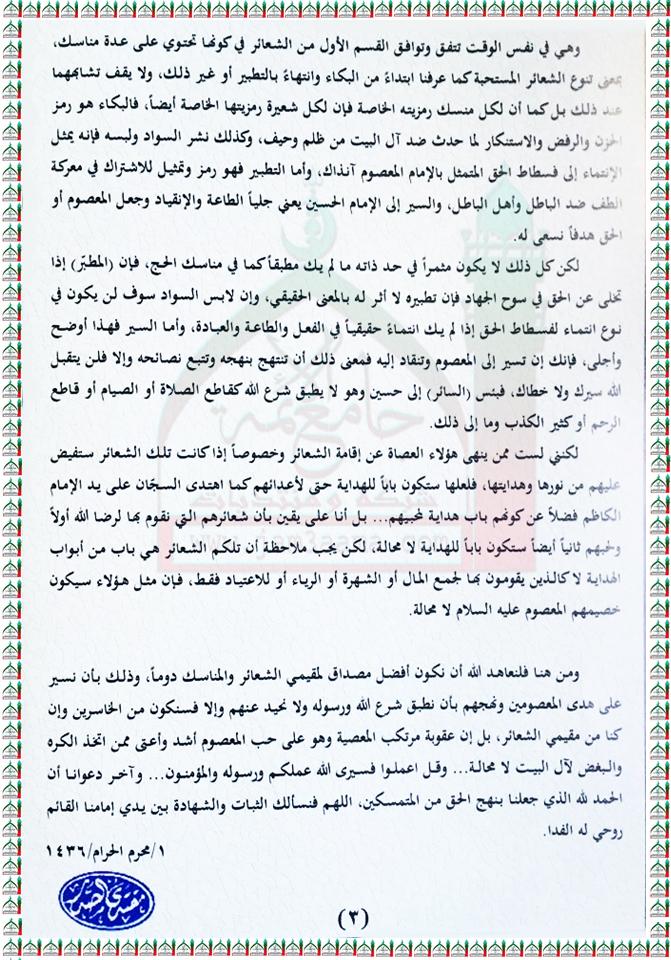 وهي في نفس الوقت تتفق وتوافق القسم الأول من الشعائر في كونها تحتوي على عدة مناسك،
بمعنى تنوع الشعائر المستحبة كما عرفنا ابتداءً من البكاء وانتهاءً بالتطبير أو غير ذلك، ولا يقف تشابههما
عند ذلك بل كما أن لكل منسك رمزيته الخاصة فإن لكل شعيرة رمزيتها الخاصة أيضاً، فالبكاء هو رمز
الحزن والرفض والاستنكار لما حدث ضد آل البيت من ظلم وحيف، وكذلك نشر السواد ولبسه فإنه يمثل
الإنتماء إلى فسطاط الحق المتمثل بالإمام المعصوم آنذاك، وأما التطبير فهو رمز وتمثيل للاشتراك في معركة
الطف ضد الباطل وأهل الباطل، والسير إلى الإمام الحسين يعني جلياً الطاعة والإنقياد وجعل المعصوم أو
الحق هدفاً نسعى له.
لكن كل ذلك لا يكون مثمراً في حد ذاته ما لم يك مطبقاً كما في مناسك الحج، فإن (المطبّر) إذا
تخلى عن الحق في سوح الجهاد فإن تطبيره لا أثر له بالمعنى الحقيقي، وإن لابس السواد سوف لن يكون في
نوع انتماء لفسطاط الحق إذا لم يك انتماءً حقيقياً في الفعل والطاعة والعبادة، وأما السير فهذا أوضح
وأجلى، فإنك إن تسير إلى المعصوم وتنقاد إليه فمعنى ذلك أن تنتهج بنهجه وتتبع نصائحه وإلا فلن يتقبل
الله سيرك ولا خطاك، فبئس (السائر) إلى حسين وهو لا يطبق شرع الله كقاطع الصلاة أو الصيام أو قاطع
الرحم أو كثير الكذب وما إلى ذلك.
لكنني لست ممن ينهى هؤلاء العصاة عن إقامة الشعائر وخصوصاً إذا كانت تلك الشعائر ستفيض
عليهم من نورها وهدايتها، فلعلها ستكون باباً للهداية حتى لأعدائهم كما اهتدى السجّان على يد الإمام
الكاظم فضلاً عن كونهم باب هداية لمحبيهم... بل أنا على يقين بأن شعائرهم التي نقوم بها لرضا الله أولاً
ولحبهم ثانياً أيضاً ستكون باباً للهداية لا محالة، لكن يجب ملاحظة أن تلكم الشعائر هي باب من أبواب
الهداية لا كالذين يقومون بها لجمع المال أو الشهرة أو الرياء أو للاعتياد فقط، فإن مثل هؤلاء سيكون
خصيمهم المعصوم عليه السلام لا محالة.
ومن هنا فلنعاهد الله أن نكون أفضل مصداق لمقيمي الشعائر والمناسك دوماً، وذلك بأن نسير
على هدى المعصومين ونهجهم بأن نطبق شرع الله ورسوله ولا نحيد عنهم وإلا فسنكون من الخاسرين وإن
كنا من مقيمي الشعائر، بل إن عقوبة مرتكب المعصية وهو على حب المعصوم أشد وأعتى ممن اتخذ الكره
والبغض لآل البيت لا محالة... وقل اعملوا فسيرى الله عملكم ورسوله والمؤمنون... وآخر دعوانا أن
الحمد لله الذي جعلنا بنهج الحق من المتمسكين، اللهم فنسألك الثبات والشهادة بين يدي إمامنا القائم
روحي له الفدا.
١/محرم الحرام/١٤٣٦
مقتدى الصدر
(٣)
جامع الأئمة
شبكة ومنتديات